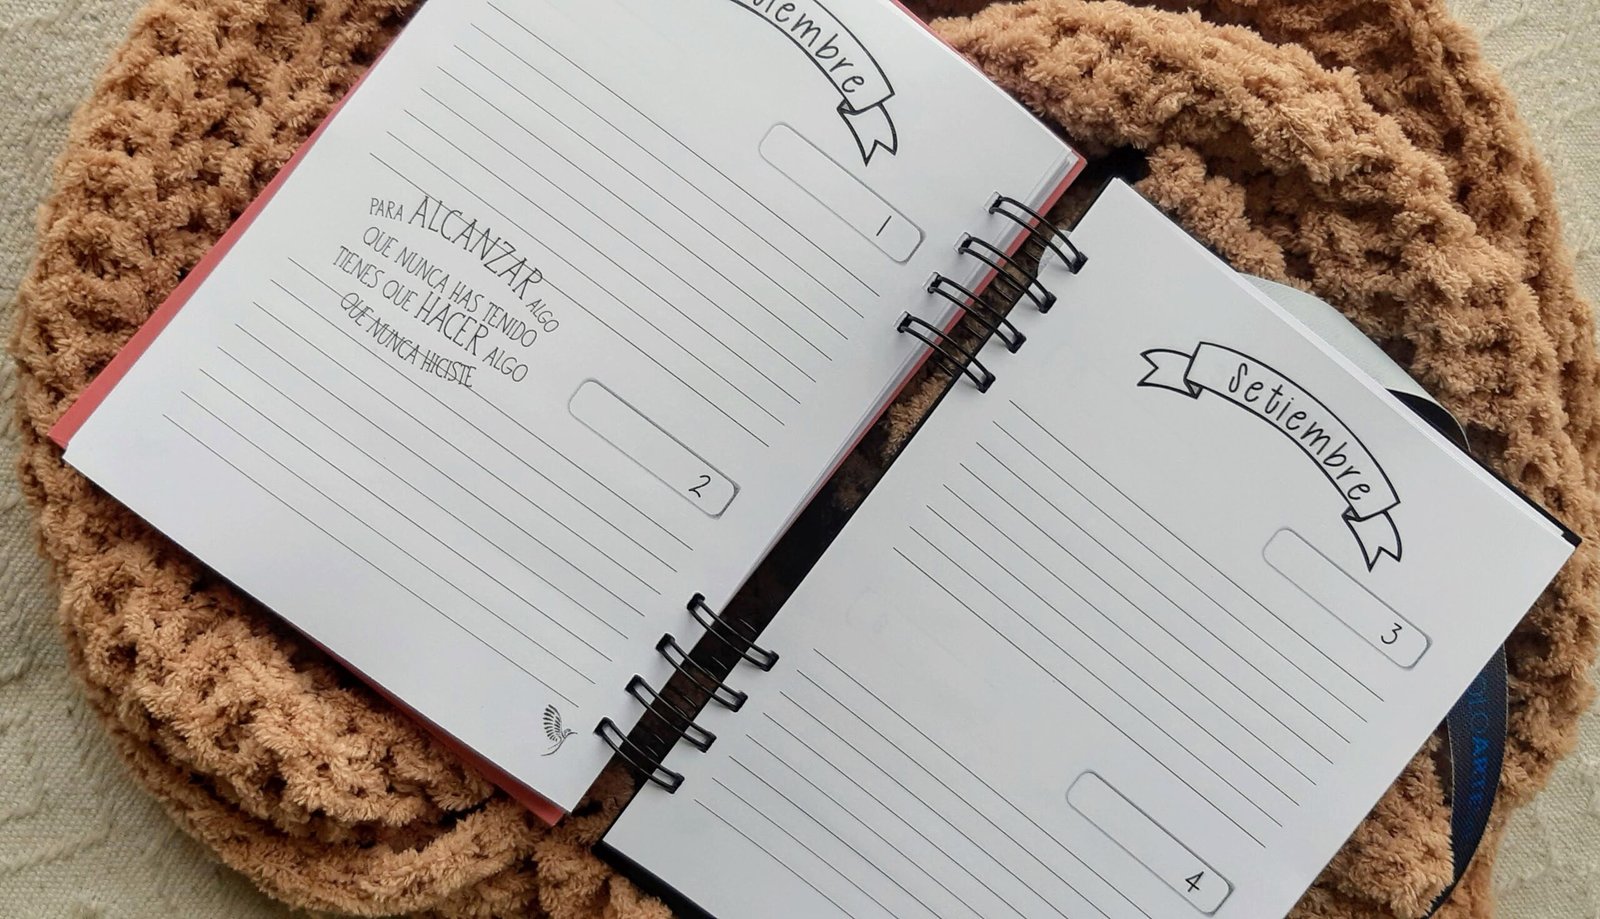 1
PARA ALCANZAR ALGO
QUE NUNCA HAS TENIDO
TIENES QUE HACER ALGO
QUE NUNCA HICISTE
2
Setiembre
3
4